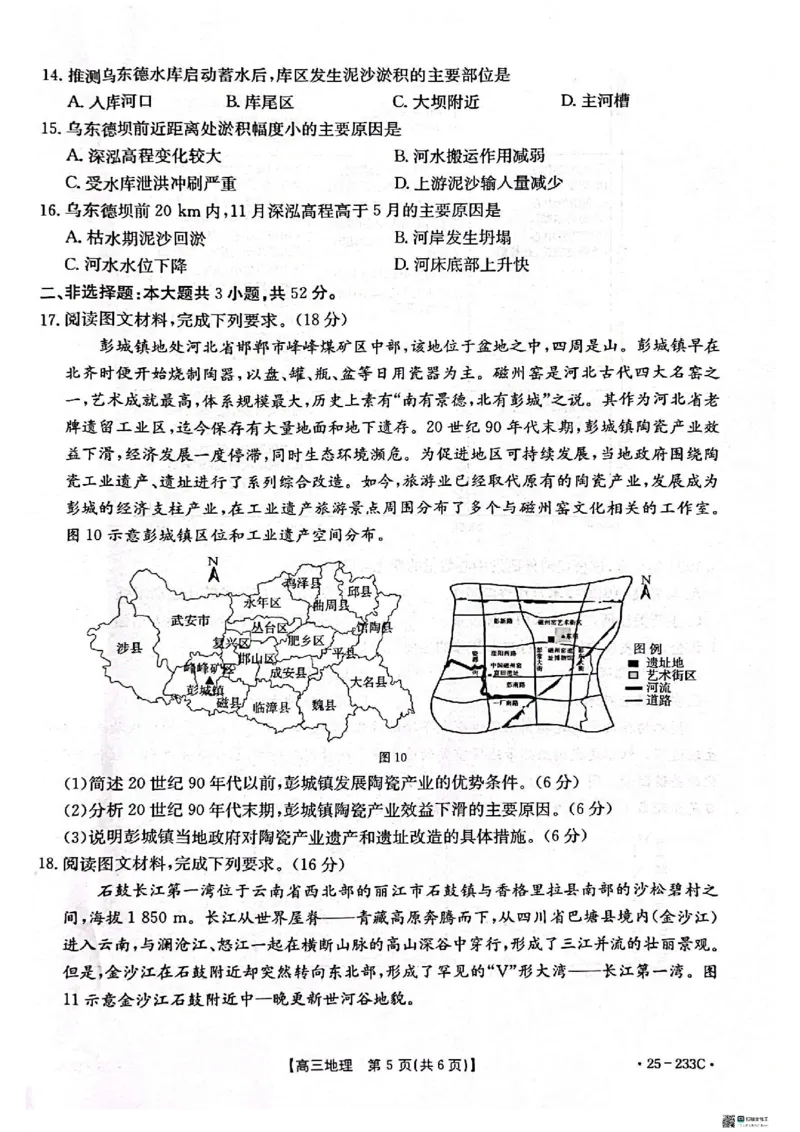 14. 推测乌东德水库启动蓄水后,库区发生泥沙淤积的主要部位是
A. 入库河口 B. 库尾区 C. 大坝附近 D. 主河槽
15. 乌东德坝前近距离处淤积幅度小的主要原因是
A. 深泓高程变化较大 B. 河水搬运作用减弱
C. 受水库泄洪冲刷严重 D. 上游泥沙输入量减少
16. 乌东德坝前 20 km 内,11 月深泓高程高于 5 月的主要原因是
A. 枯水期泥沙回淤 B. 河岸发生坍塌
C. 河水水位下降 D. 河床底部上升快
二、非选择题:本大题共 3 小题,共 52 分。
17. 阅读图文材料,完成下列要求。(18 分)
彭城镇地处河北省邯郸市峰峰煤矿区中部,该地位于盆地之中,四周是山。彭城镇早在
北齐时便开始烧制陶器,以盘、罐、瓶、盆等日用瓷器为主。磁州窑是河北古代四大名窑之
一,艺术成就最高,体系规模最大,历史上素有“南有景德,北有彭城”之说。其作为河北省老
牌遗留工业区,迄今保存有大量地面和地下遗存。20 世纪 90 年代末期,彭城镇陶瓷产业效
益下滑,经济发展一度停滞,同时生态环境濒危。为促进地区可持续发展,当地政府围绕陶
瓷工业遗产、遗址进行了系列综合改造。如今,旅游业已经取代原有的陶瓷产业,发展成为
彭城的经济支柱产业,在工业遗产旅游景点周围分布了多个与磁州窑文化相关的工作室。
图 10 示意彭城镇区位和工业遗产空间分布。
N
鸡泽县
邱县
永年区
曲周县
武安市
丛台区
馆陶县
涉县
复兴区
肥乡区
广平县
邯山区
峰峰矿区
成安县
大名县
彭城镇
磁县
临漳县
魏县
N
彭新路
磁州窑艺术街区
滏阳西路
彭南路
一厂南路
图例
遗址地
艺术街区
河流
道路
图 10
(1)简述 20 世纪 90 年代以前,彭城镇发展陶瓷产业的优势条件。(6 分)
(2)分析 20 世纪 90 年代末期,彭城镇陶瓷产业效益下滑的主要原因。(6 分)
(3)说明彭城镇当地政府对陶瓷产业遗产和遗址改造的具体措施。(6 分)
18. 阅读图文材料,完成下列要求。(16 分)
石鼓长江第一湾位于云南省西北部的丽江市石鼓镇与香格里拉县南部的沙松碧村之
间,海拔 1 850 m。长江从世界屋脊——青藏高原奔腾而下,从四川省巴塘县境内(金沙江)
进入云南,与澜沧江、怒江一起在横断山脉的高山深谷中穿行,形成了三江并流的壮丽景观。
但是,金沙江在石鼓附近却突然转向东北部,形成了罕见的“V”形大湾——长江第一湾。图
11 示意金沙江石鼓附近中—晚更新世河谷地貌。
【高三地理 第 5 页(共 6 页)】
·25-233C·